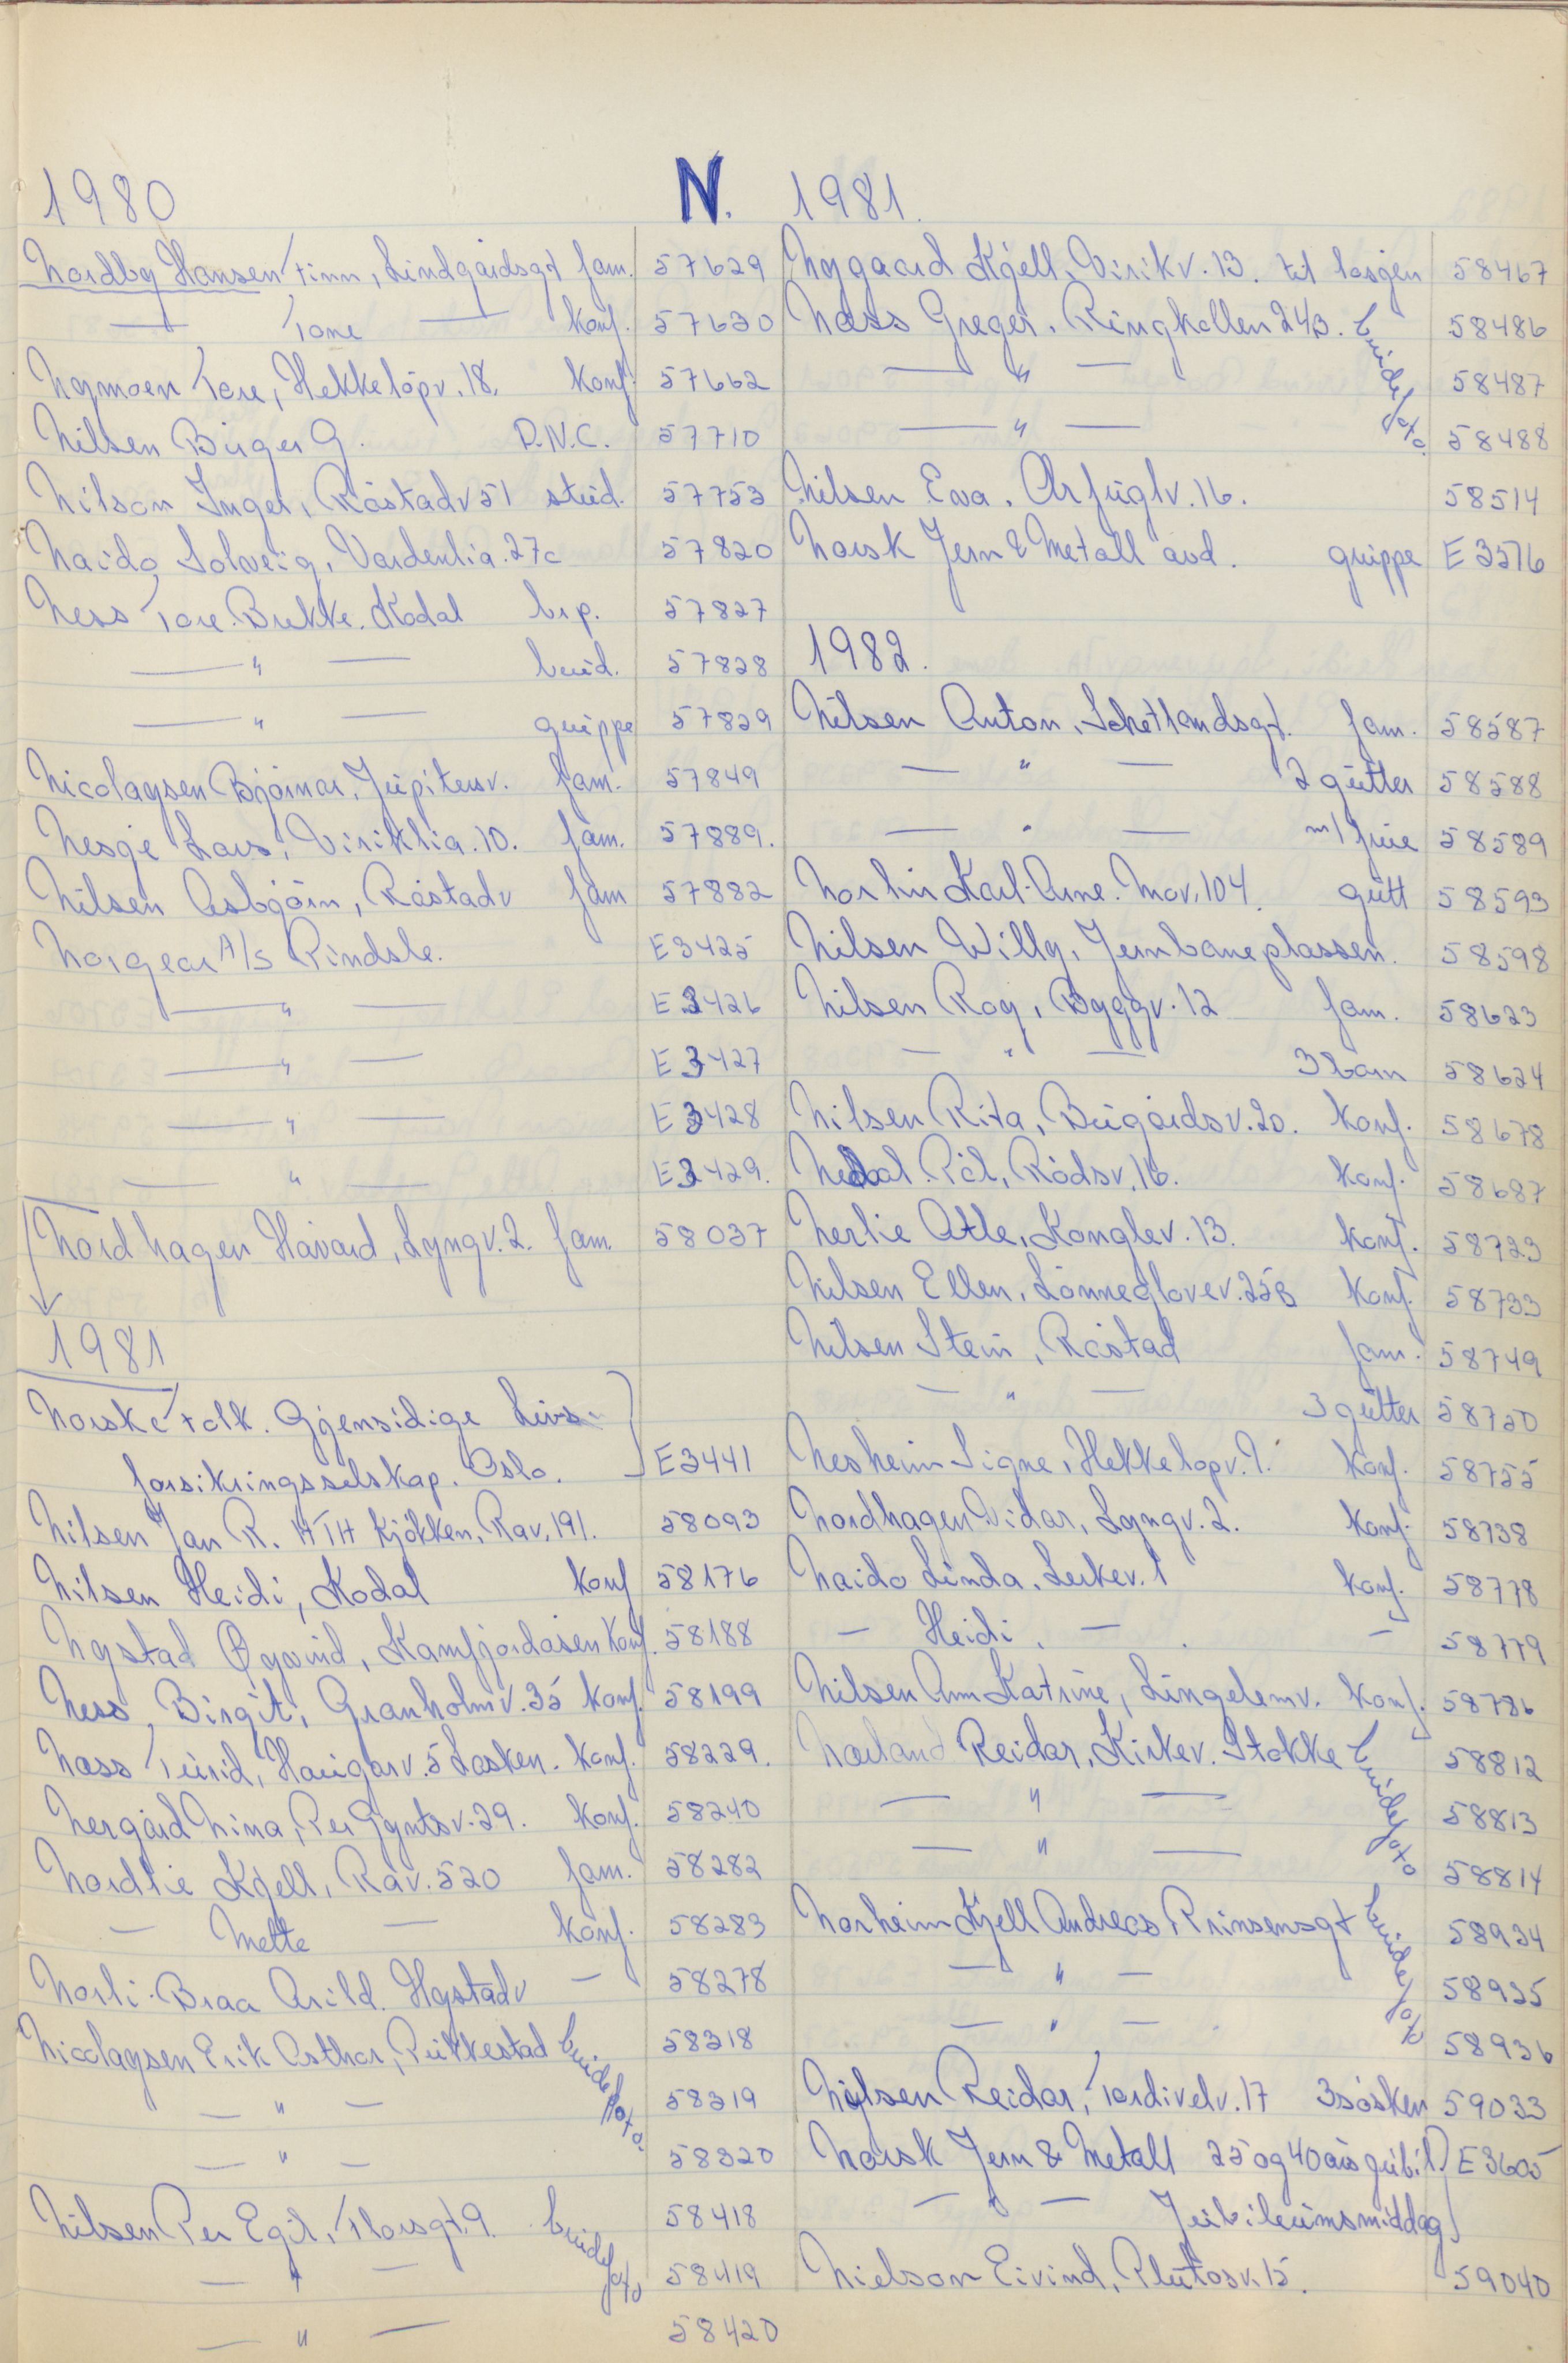 N.
1980
Nordby Hansen Finn, Lindgårdsgt fam. 57629
— Tone — konf. 57630
Nymoen Tore, Hekkeløpv. 18. konf. 57662
Nilsen Birger G. D.N.C. 57710
Nilson Inger, Råstadv 51 stud. 57753
Naido Solveig, Vardenlia. 27c 57820
Ness Tore. Brekke. Kodal brp. 57827
— " — brud. 57828
— " — gruppe 57829
Nicolaysen Bjørnar, Jupitersv. fam. 57849
Nesje Lars, Viriklia. 10. fam. 57889.
Nilsen Asbjørn, Råstadv fam 57882
Norgear A/S Rindsle. E3425
— " — E3426
— " — E3427
— " — E3428
— " — E3429.
Nordhagen Håvard, Lyngv. 2. fam. 58037
1981
Norske Folk. Gjensidige Livs-
forsikringsselskap. Oslo. E3441
Nilsen Jan R. HTH Kjøkken, Rav. 191. 58093
Nilsen Heidi, Kodal konf 58176
Nystad Øyvind, Kamfjordåsen konf. 58188
Ness, Birgit, Granholmv. 35 konf. 58199
Næss Turid, Haugarv. 5 Lasken. konf. 58229.
Nergård Nina, Per Gyntsv. 29. konf. 58240
Nordlie Kjell, Rav. 520 fam. 58282
— Mette — konf. 58283
Norli-Braa Arild. Nystadv — 58278
Nicolaysen Erik Asthor, Pukkestad brudefoto. 58318
— " — 58319
— " — 58320
Nilsen Per Egil, Thorsgt. 9. brudefoto 58418
— " — 58419
— " — 58420
1981.
Nygaard Kjell, Virikv. 13. til losjen 58467
Næss Greger. Ringkollen 24B. brudefoto. 58486
— " — 58487
— " — 58488
Nilsen Eva. Orfuglv. 16. 58514
Norsk Jern & Metall avd. gruppe E3576
1982.
Nilsen Anton, Schetlandsgt. fam. 58587
— " — 2 gutter 58588
— " — m/ frue 58589
Norhir Karl-Arne. Mov. 104. gutt 58593
Nilsen Willy, Jernbaneplassen. 58598
Nilsen Roy, Byggv. 12 fam. 58623
— " — 3 barn 58624
Nilsen Rita, Bugårdsv. 20. konf. 58678
Nedal Pål, Rødsv. 16. konf. 58687
Nerlie Atle, Konglev. 13. konf. 58723
Nilsen Ellen, Lønnegløvev. 25B konf. 58733
Nilsen Stein, Råstad fam. 58749
— " — 3 gutter 58750
Nesheim Signe, Hekkeløpv. 9. konf. 58755
Nordhagen Vidar, Lyngv. 2. konf. 58738
Naido Linda, Lerkev. 1 konf. 58778
— Heidi. — . — 58779
Nilsen Ann Katrine, Lingelemv. konf. 58786
Norland Reidar, Kirkev. Stokke brudefoto 58812
— " — 58813
— " — 58814
Norheim Kjell Andreas Prinsensgt brudefoto 58934
— " — 58935
— " — 58936
Nilsen Reidar, Tordivelv. 17 3 søsken 59033
Norsk Jern & Metall 25 og 40 års jubil. E3605
— " — Jubileumsmiddag
Nielson Eivind, Plutosv. 15. 59040